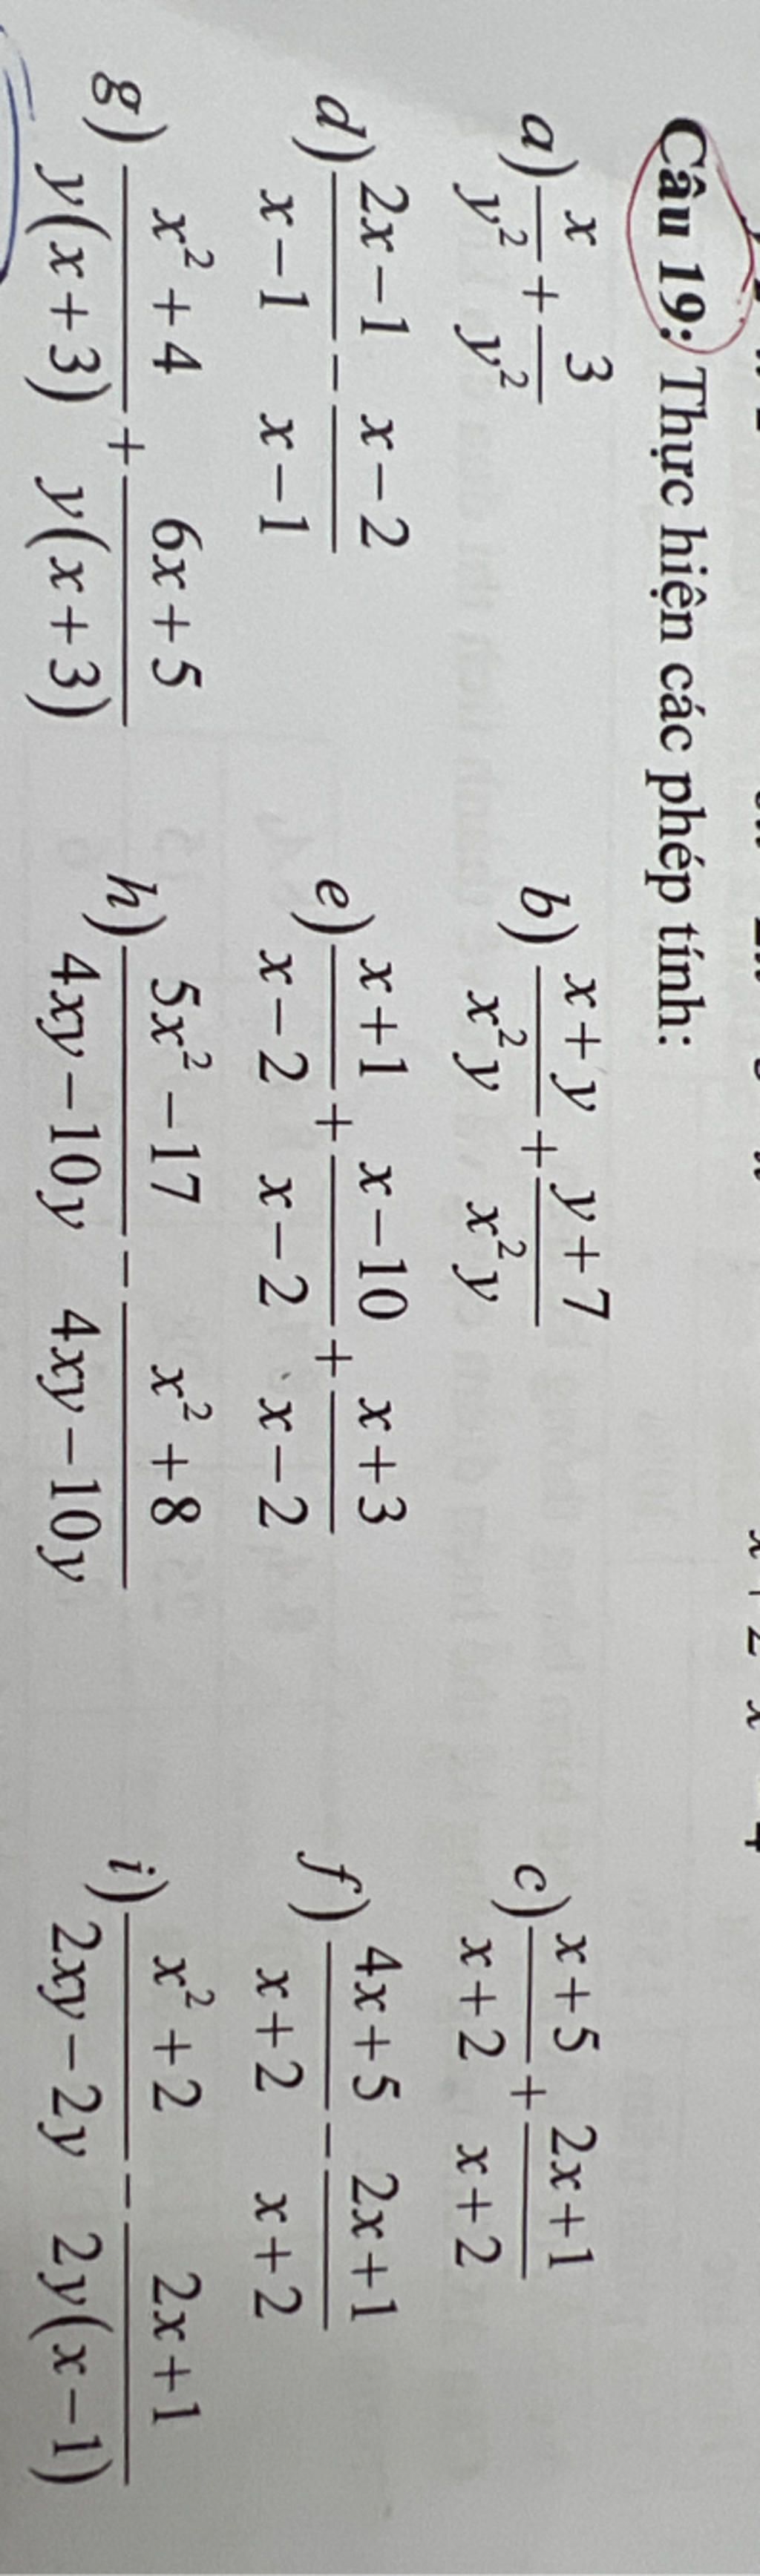 Câu 19: Thực hiện các phép tính:
a) x/y² + 3/y² b) (x+y)/(x²y) + (y+7)/(x²y) c) (x+5)/(x+2) + (2x+1)/(x+2)
d) (2x−1)/(x−1) − (x−2)/(x−1) e) (x+1)/(x−2) + (x−10)/(x−2) + (x+3)/(x−2) f) (4x+5)/(x+2) − (2x+1)/(x+2)
g) (x²+4)/(y(x+3)) + (6x+5)/(y(x+3)) h) (5x²−17)/(4xy−10y) − (x²+8)/(4xy−10y) i) (x²+2)/(2xy−2y) − (2x+1)/(2y(x−1))